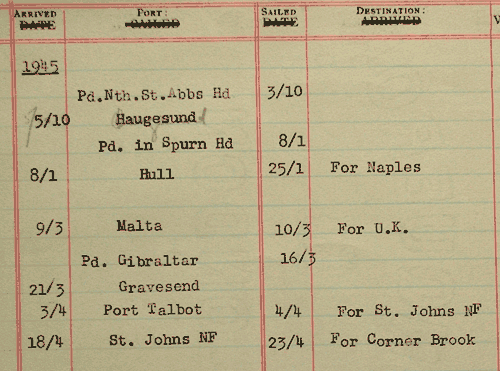 ARRIVED PORT: SAILED DESTINATION:
DATE SAILED DATE ARRIVED V
1945
Pd.Nth.St.Abbs Hd 3/10
5/10 Haugesund
Pd. in Spurn Hd 8/1
8/1 Hull 25/1 For Naples
9/3 Malta 10/3 For U.K.
Pd. Gibraltar 16/3
21/3 Gravesend
3/4 Port Talbot 4/4 For St. Johns NF
18/4 St. Johns NF 23/4 For Corner Brook